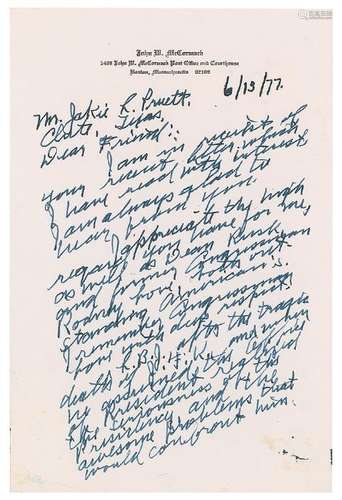 John W. McCormack
1429 John W. McCormack Post Office and Courthouse
Boston, Massachusetts 02109
6/13/77.
Mr. Jakie L. Pruett,
Texas,
Dear Friend:
I am in receipt of
your recent letter which
I have read with interest
I am always glad to
hear from you.
I appreciate the high
regard you have for me,
as well as Dean Rusk
and former Congressman
both out-
standing American's.
I remember Congressman
with deep respect.
L.B.J.
death of J.F.K., and when
he assumed the office
of President realized
the seriousness of the
Presidency and the
awesome problems that
would confront him.